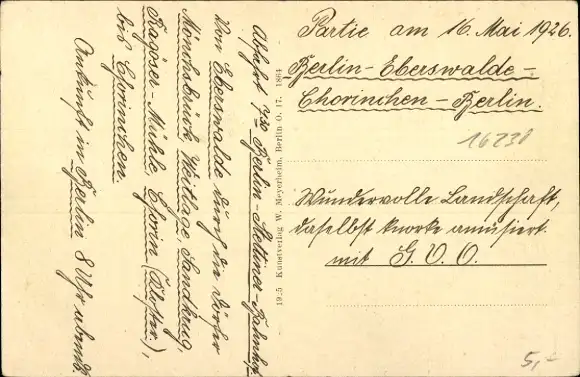 Partie am 16. Mai 1926.
Berlin-Eberswalde-
Chorinchen-Berlin.
16238
Wundervolle Landschaft,
daselbst knorke amüsiert.
mit G. V. O.
5,-
1925 Kunstverlag W. Meyerheim, Berlin O. 17. 1864
Abfahrt 7³⁰ Berlin-Stettiner-Bahnhof
Von Eberswalde durch die Dörfer
Mönchsbrück, Weitlage, Sandkrug,
Ragöser-Mühle, Chorin (Kloster.),
bis Chorinchen.
Ankunft in Berlin 8 Uhr abends.